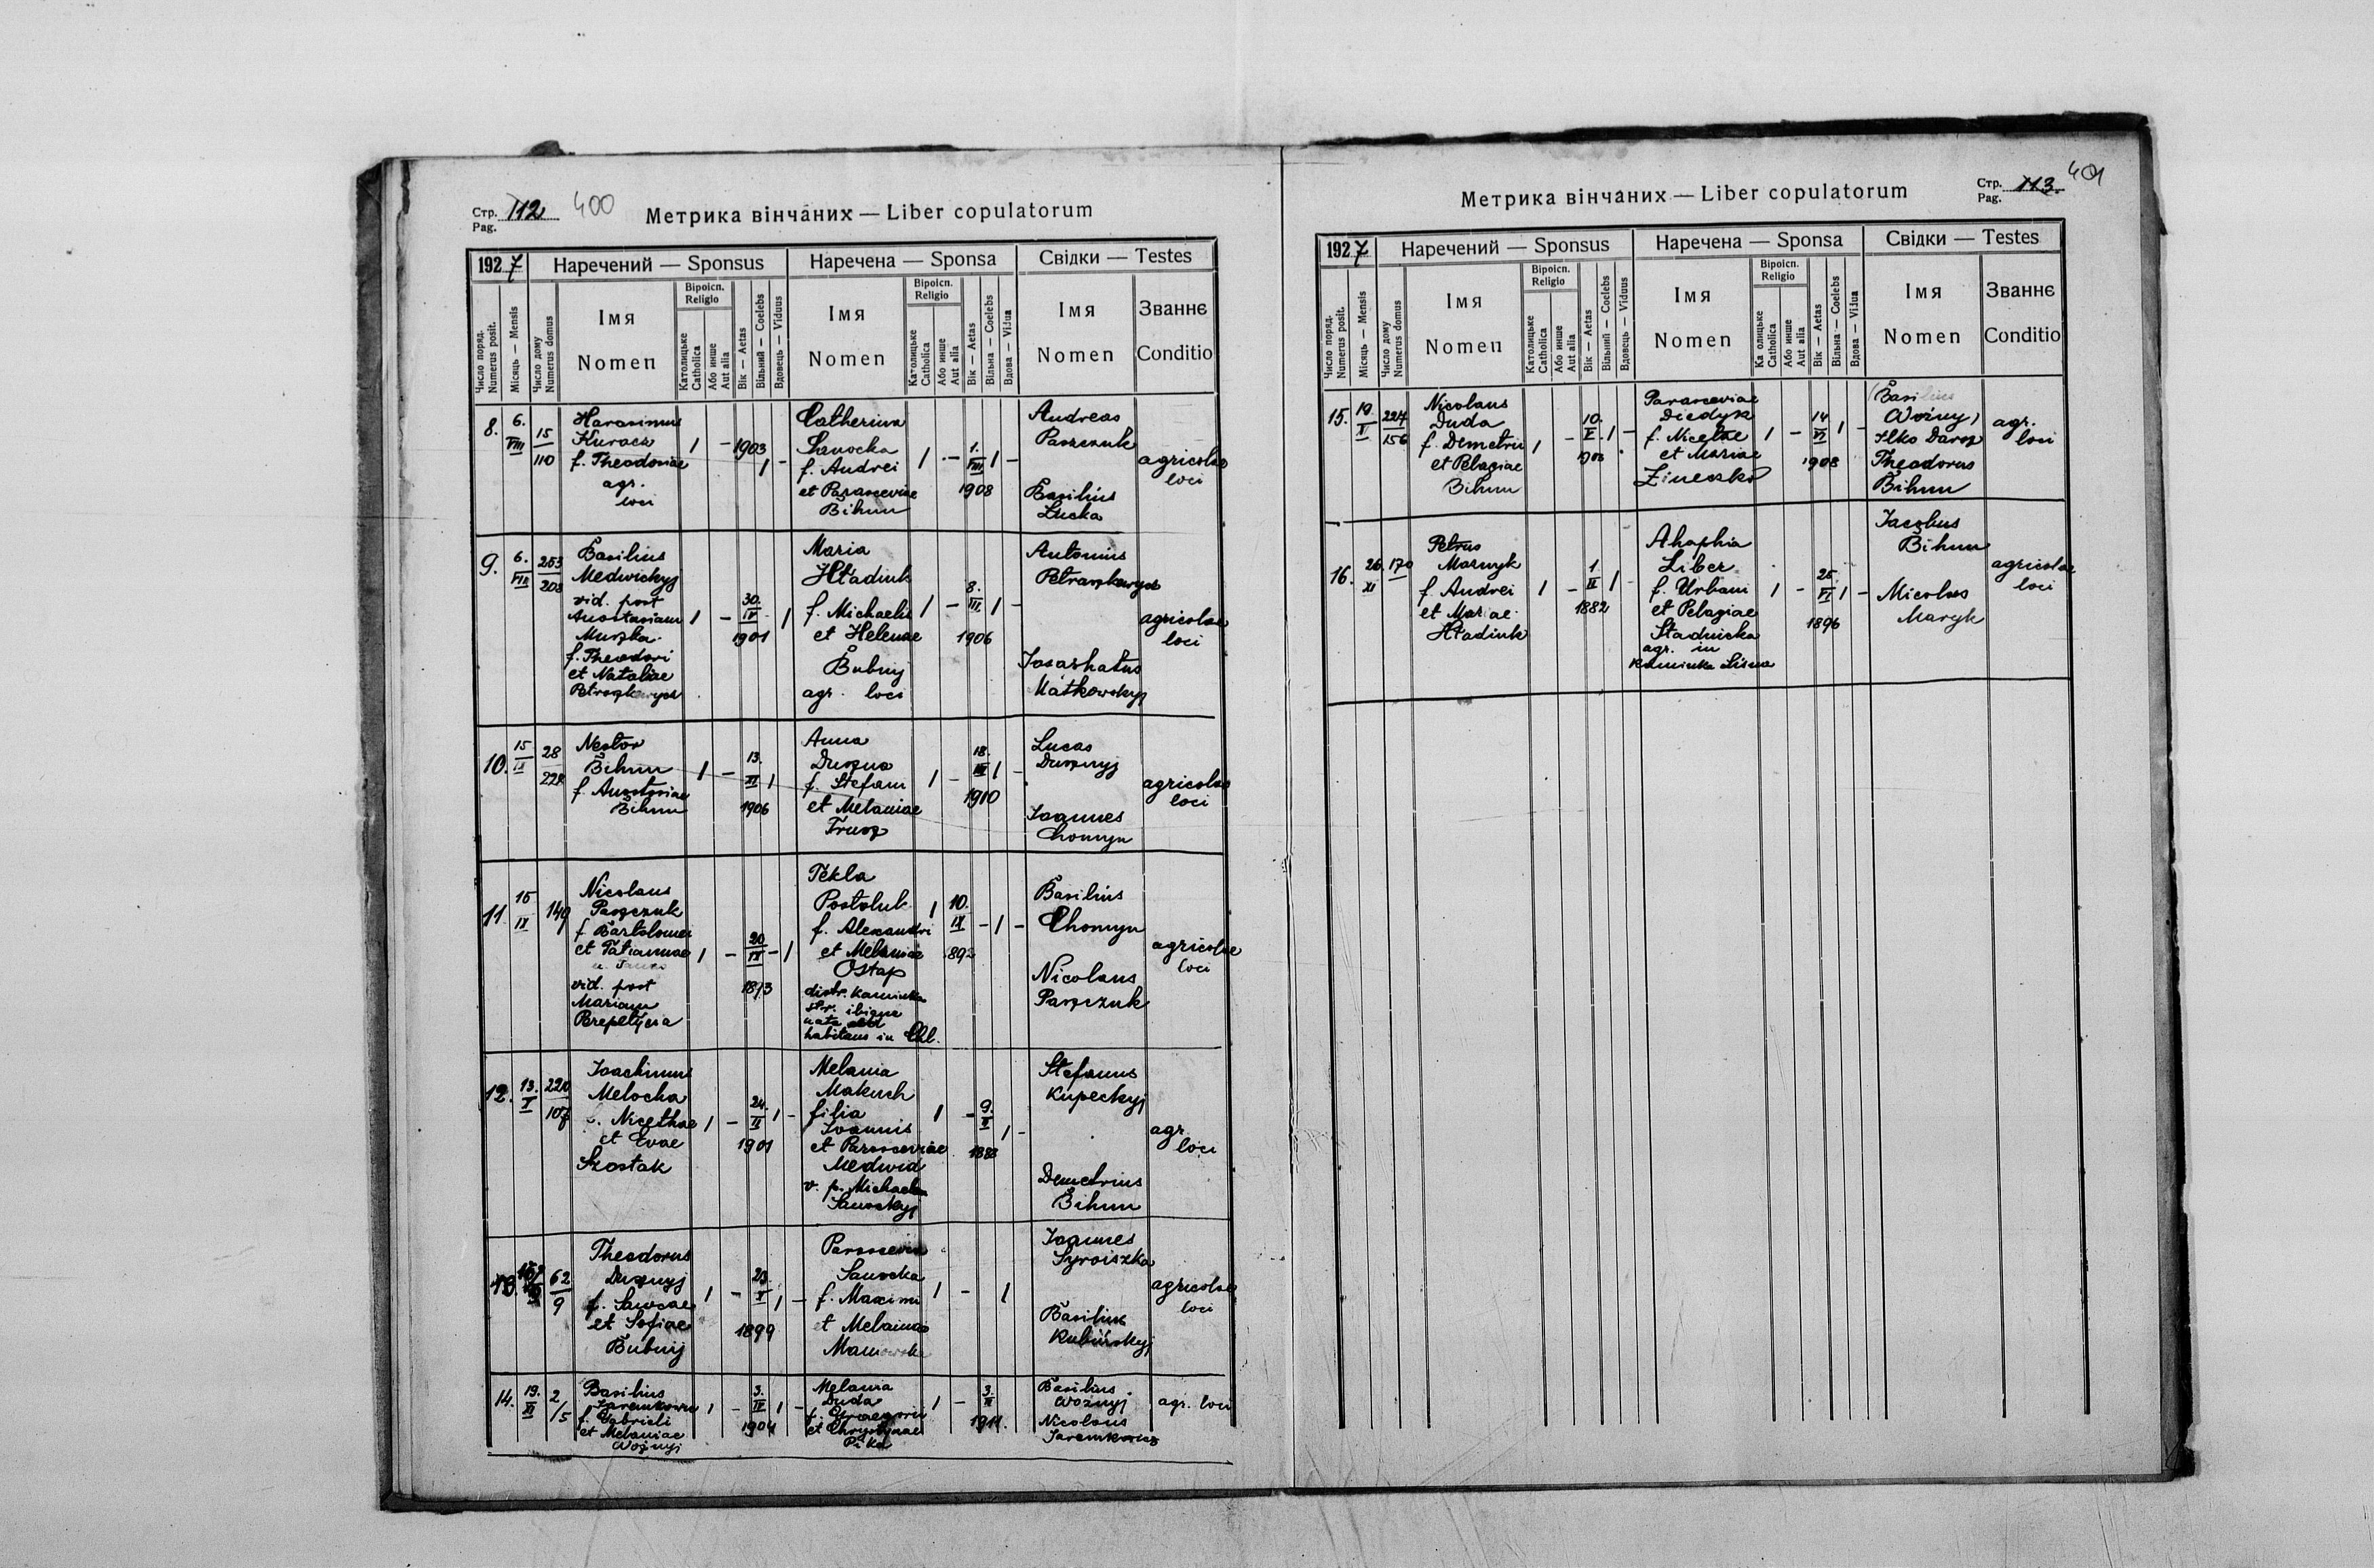 Стр. 112 400
Pag.
Метрика вінчаних — Liber copulatorum
1927
Наречений — Sponsus
Наречена — Sponsa
Свідки — Testes
Число поряд.
Numerus posit.
Місяць — Mensis
Число дому
Numerus domus
Імя
Nomen
Віроісп.
Religio
Католицьке
Catholica
Або инше
Aut alia
Вік — Aetas
Вільний — Coelebs
Вдовець — Viduus
Імя
Nomen
Віроісп.
Religio
Католицьке
Catholica
Або инше
Aut alia
Вік — Aetas
Вільна — Coelebs
Вдова — Vidua
Імя
Nomen
Званнє
Conditio
8.
6.
VIII
15
110
Harasimus
Kuracz
f. Theodosiae
agr.
loci
1 -
1903
1 -
Catherina
Sanocka
f. Andrei
et Parasceviae
Bihun
1 -
1.
VIII
1908
1 -
Andreas
Paszczuk
Basilius
Lucka
agricolae
loci
9.
6.
VIII
253
203
Basilius
Medwickyj
vid. post
Anastasiam
Muszka
f. Theodori
et Nataliae
Petraszkewycz
1 -
30.
IV
1901
1
Maria
Hładiuk
f. Michaelis
et Helenae
Bubnij
agr. loci
1 -
8.
III
1906
1 -
Antonius
Petraszkewycz
Josaphatus
Matkowskyj
agricolae
loci
10.
15
IX
28
228
Nestor
Bihun
f. Anastasiae
Bihun
1 -
13.
XI
1906
1
Anna
Duszna
f. Stefani
et Melaniae
Trusz
1 -
18.
III
1910
1 -
Lucas
Dusznyj
Joannes
Chomyn
agricolae
loci
11.
15
IX
149
Nicolaus
Paszczuk
f. Bartolomei
et Tatiannae
vid. post
Mariam
Perepełycia
1 -
20
IX
1873
- 1
Tekla
Postoluk
f. Alexandri
et Melaniae
Ostap
distr. Kaminka
str. ibique
nata
habitans in Chl.
1
10.
IX
892
- 1 -
Basilius
Chomyn
Nicolaus
Paszczuk
agricolae
loci
12.
13.
X
220
107
Joachimus
Melocha
f. Nicethae
et Evae
Szostak
1 -
24.
II
1901
1 -
Melania
Makuch
filia
Joannis
et Parasceviae
Medwid
v. p. Michaele
Sanockyj
1 -
9.
X
1888
1 -
Stefanus
Kupeckyj
Demetrius
Bihun
agr.
loci
13.
62
9
Theodorus
Dusznyj
f. Sawcae
et Sofiae
Bubnij
1 -
23.
X
1899
1 -
Parascevia
Sanocka
f. Maximi
et Melaniae
1 -
1
Joannes
Syroiszka
Basilius
Kubinskyj
agricolae
loci
14.
19.
XI
2
15
Basilius
Jaremkowicz
f. Gabrieli
et Melaniae
Woznyj
1 -
3.
IV
1904
1 -
Melania
Duda
f. Gregorii
et Chrystinae
Pika
1 -
3.
II
1911.
Basilius
Woznyj
Nicolaus
Jaremkowicz
agr. loci
Стр. 113. 401
Pag.
Метрика вінчаних — Liber copulatorum
1927
Наречений — Sponsus
Наречена — Sponsa
Свідки — Testes
Число поряд.
Numerus posit.
Місяць — Mensis
Число дому
Numerus domus
Імя
Nomen
Віроісп.
Religio
Католицьке
Catholica
Або инше
Aut alia
Вік — Aetas
Вільний — Coelebs
Вдовець — Viduus
Імя
Nomen
Віроісп.
Religio
Ка олицьке
Catholica
Або инше
Aut alia
Вік — Aetas
Вільна — Coelebs
Вдова — Vidua
Імя
Nomen
Званнє
Conditio
15.
19
X
227
156
Nicolaus
Duda
f. Demetrii
et Pelagiae
Bihun
1 -
10.
X
1 -
Parasceviae
Diedyk
f. Nicetae
et Mariae
Zineszko
1 -
14
VI
1908
1 -
Basilius
Woźnyj
Ilko Darsz
Theodorus
Bihun
agr.
loci
16.
26
XI
170
Petrus
Marnyk
f. Andrei
et Mariae
Hładiuk
1 -
1
II
1882
1 -
Ahaphia
Liber
f. Urbani
et Pelagiae
Stadnicka
agr. in
Kaminka
1 -
25
VI
1896
1 -
Jacobus
Bihun
Nicolaus
Maryk
agricolae
loci